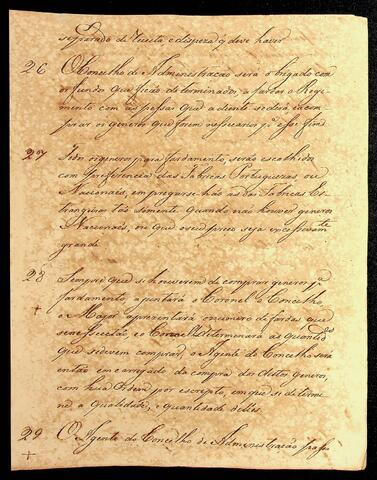 separado da receita e despeza q deve haver
26 O Concelho de Administração será obrigado com
os fundos que ficão determinados, a fardar o Regi-
mento com as pessas que adiante se dirá e a com-
prar os generos que forem necessarios pª esse fim
27 Todos os generos para fardamento, serão escolhidos
com preferencia das Fabricas Portuguezas ou
Nacionais, empregarse-hão as das Fabricas Es-
trangeiras tão somente quando não houver generos
Nacionais, ou que o seu preço seja excessivam.te
grande
28 Sempre que se houverem de comprar generos pª
+ fardamento, ajuntará o Coronel o Concelho
e o Major aprezentará o numero de fardas, que
se necessitão, e o Coronel determinará as quantid.es
que se devem comprar, o Agente do Concelho será
então encarregado da compra dos ditos generos,
com huã Ordem por escripto, em que se determi-
ne a qualidade, e quantidade delles.
29 O Agente do Concelho de Administração
+